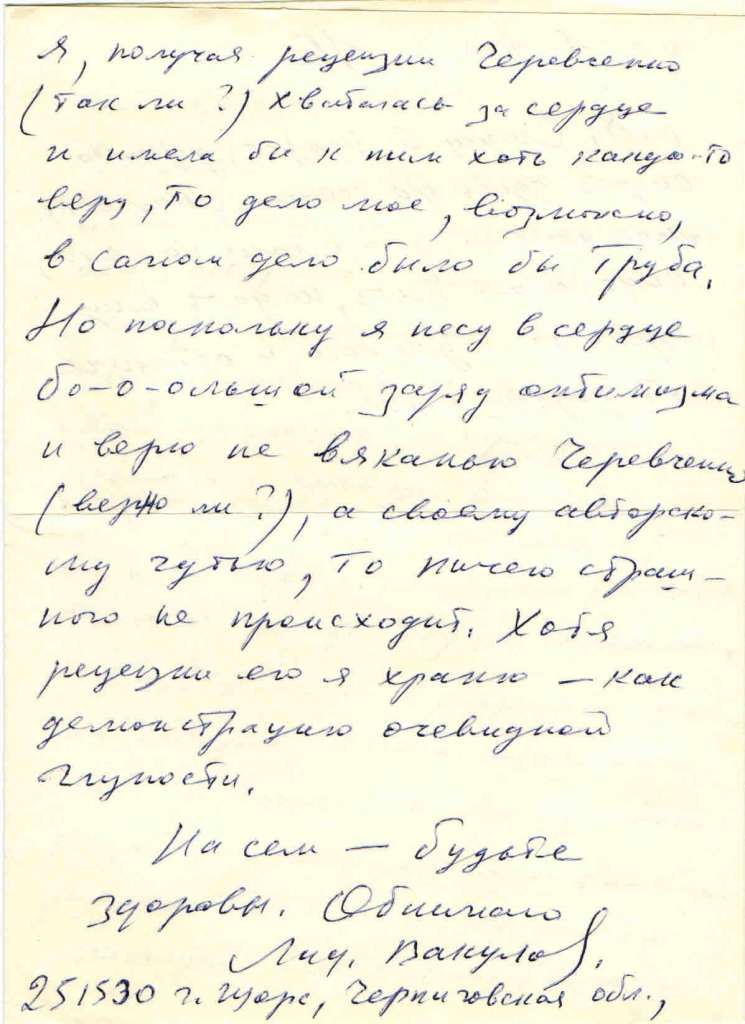 я, получая рецензии Черевченко
(так ли?) хваталась за сердце
и имела бы к ним хоть какую-то
веру, то дело мое, возможно,
в самом дело было бы труба.
Но поскольку я несу в сердце
бо-о-ольшой заряд оптимизма
и верю не вяканью Черевченко
(верно ли?), а своему авторско-
му чутью, то ничего страш-
ного не происходит. Хотя
рецензии его я храню — как
демонстрацию очевидной
глупости.
На сем — будьте
здоровы. Обнимаю
Лид. Вакула.
251530 г. Щорс, Черниговская обл.,